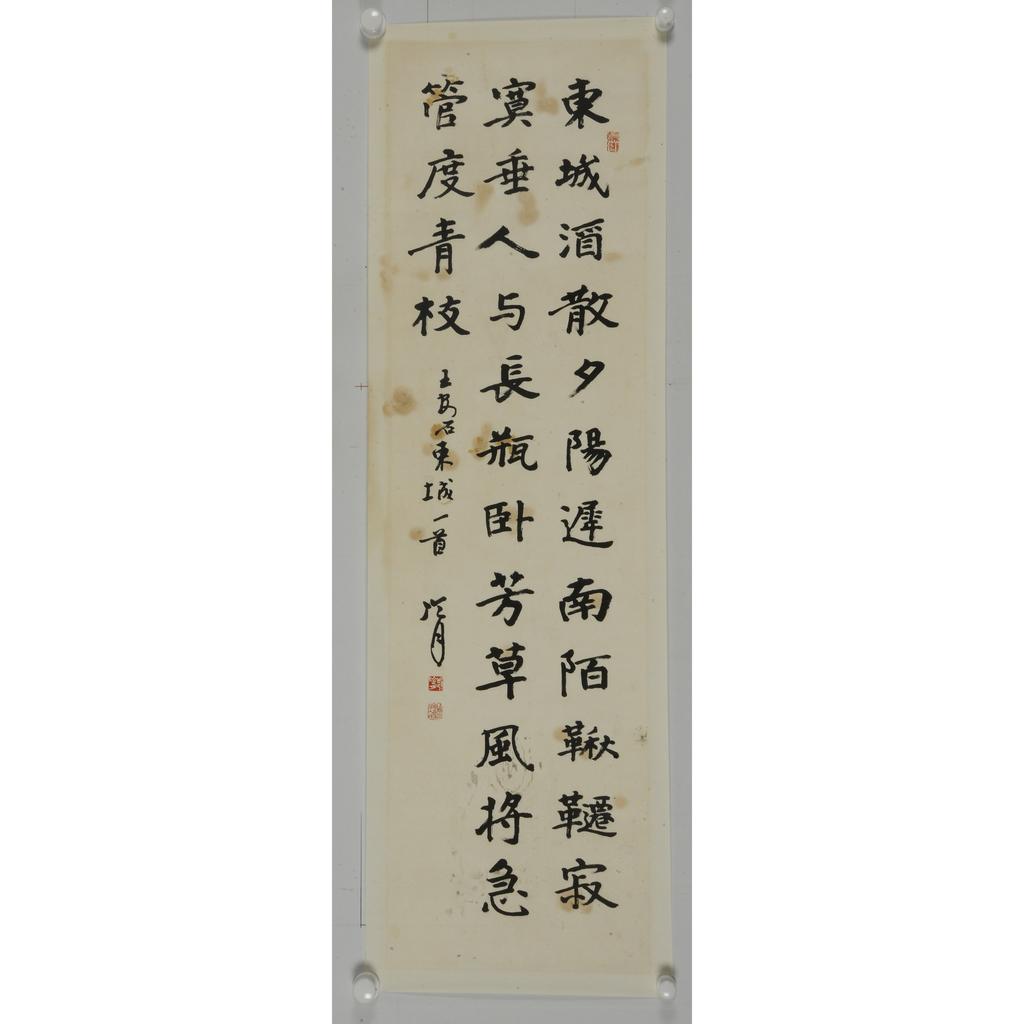 東城酒散夕陽遲南陌鞦韆寂
寞垂人与長瓶卧芳草風将急
管度青枝
王安石東城一首